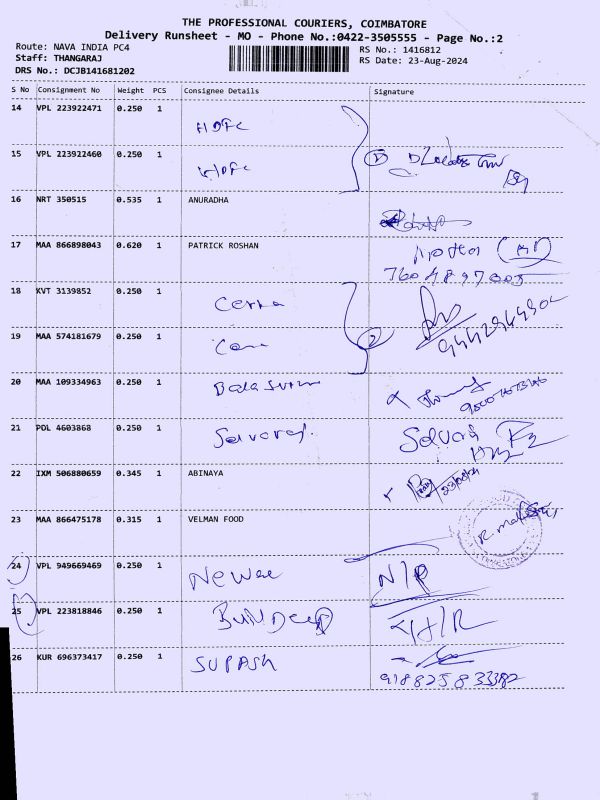 THE PROFESSIONAL COURIERS, COIMBATORE
Delivery Runsheet - MO - Phone No.:0422-3505555 - Page No.:2
Route: NAVA INDIA PC4
Staff: THANGARAJ
DRS No.: DCJB141681202
RS No.: 1416812
RS Date: 23-Aug-2024
S No Consignment No Weight PCS Consignee Details Signature
14 VPL 223922471 0.250 1 HDFC
15 VPL 223922460 0.250 1 HDFC
16 NRT 350515 0.535 1 ANURADHA
17 MAA 866898043 0.620 1 PATRICK ROSHAN
7604897005
18 KVT 3139852 0.250 1
19 MAA 574181679 0.250 1
20 MAA 109334963 0.250 1
21 POL 4603868 0.250 1 Selvaraj
22 IXM 506880659 0.345 1 ABINAYA
23 MAA 866475178 0.315 1 VELMAN FOOD
24 VPL 949669469 0.250 1 N/R
25 VPL 223818846 0.250 1
26 KUR 696373417 0.250 1 SUPASH